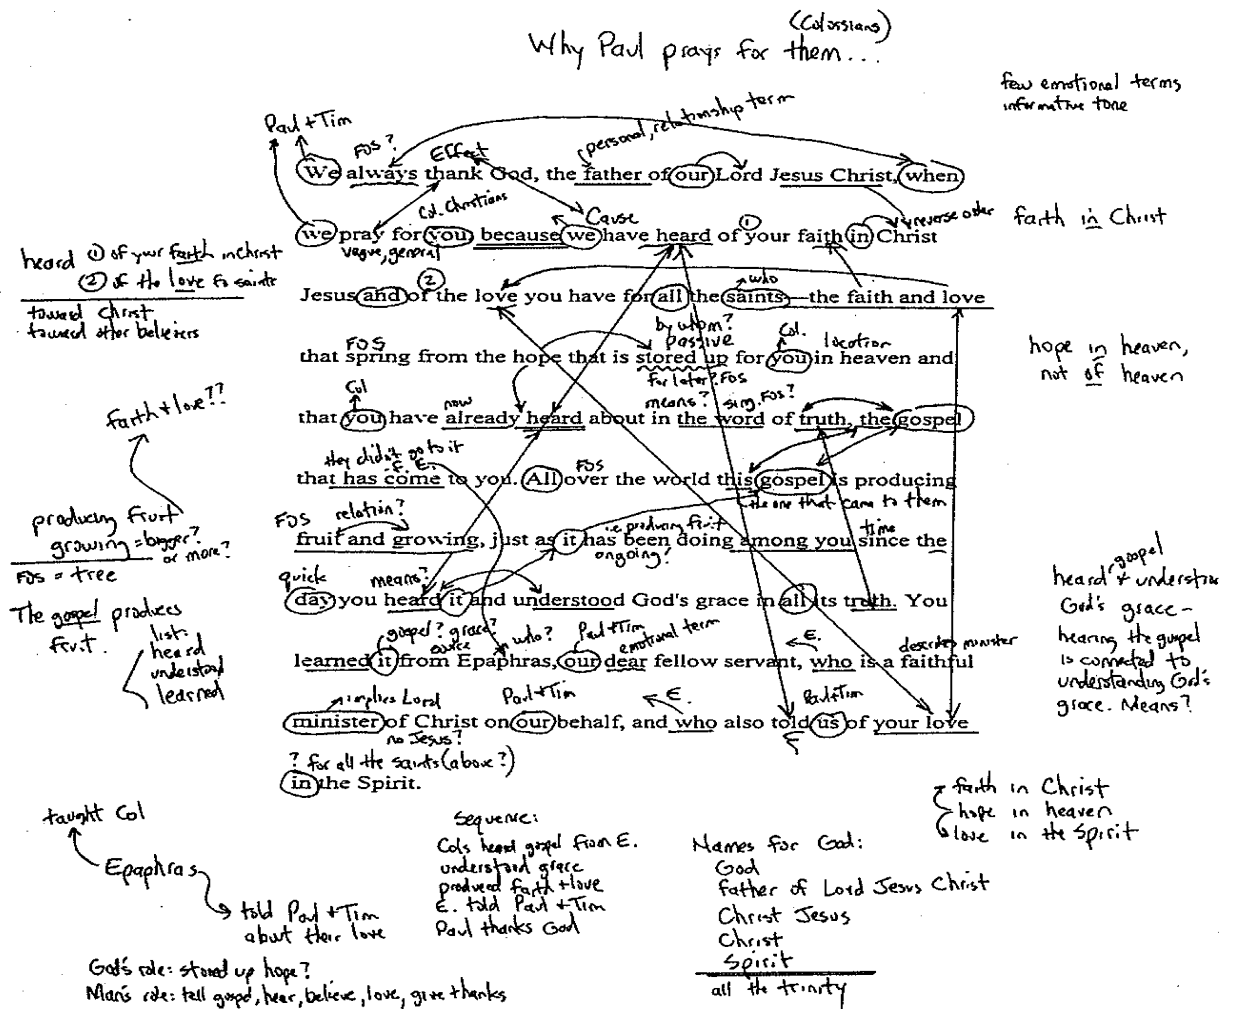 (Colossians)
Why Paul prays for them...
few emotional terms
informative tone
Paul + Tim
FOS?
Effect
personal, relationship term
We always thank God, the father of our Lord Jesus Christ, when
Col. Christians
Cause
①
reverse order
we pray for you, because we have heard of your faith in Christ
vague, general
faith in Christ
heard ① of your faith in Christ
② of the love fo saints
toward Christ
toward other believers
②
who
Jesus and of the love you have for all the saints—the faith and love
FOS
by whom?
passive
Col.
location
that spring from the hope that is stored up for you in heaven and
for later? FOS
hope in heaven,
not of heaven
Col
now
means?
sing. FOS?
that you have already heard about in the word of truth, the gospel
faith + love??
they didn't go to it
E.
FOS
that has come to you. All over the world this gospel is producing
the one that came to them
producing fruit
growing = bigger?
or more?
FOS = tree
FOS
relation?
i.e. producing fruit
time
fruit and growing, just as it has been doing among you since the
ongoing!
quick
means?
day you heard it and understood God's grace in all its truth. You
The gospel produces
fruit.
list:
heard
understood
learned
gospel? grace?
source
who?
Paul + Tim
emotional term
E.
describes minister
learned it from Epaphras, our dear fellow servant, who is a faithful
heard gospel + understood
God's grace -
hearing the gospel
is connected to
understanding God's
grace. Means?
implies Lord
Paul + Tim
E.
Paul + Tim
minister of Christ on our behalf, and who also told us of your love
no Jesus?
E
? for all the saints (above?)
in the Spirit.
faith in Christ
hope in heaven
love in the Spirit
taught Col
Epaphras
told Paul + Tim
about their love
Sequence:
Cols heard gospel from E.
understood grace
produced faith + love
E. told Paul + Tim
Paul thanks God
Names for God:
God
Father of Lord Jesus Christ
Christ Jesus
Christ
Spirit
all the trinity
God's role: stored up hope?
Man's role: tell gospel, hear, believe, love, give thanks